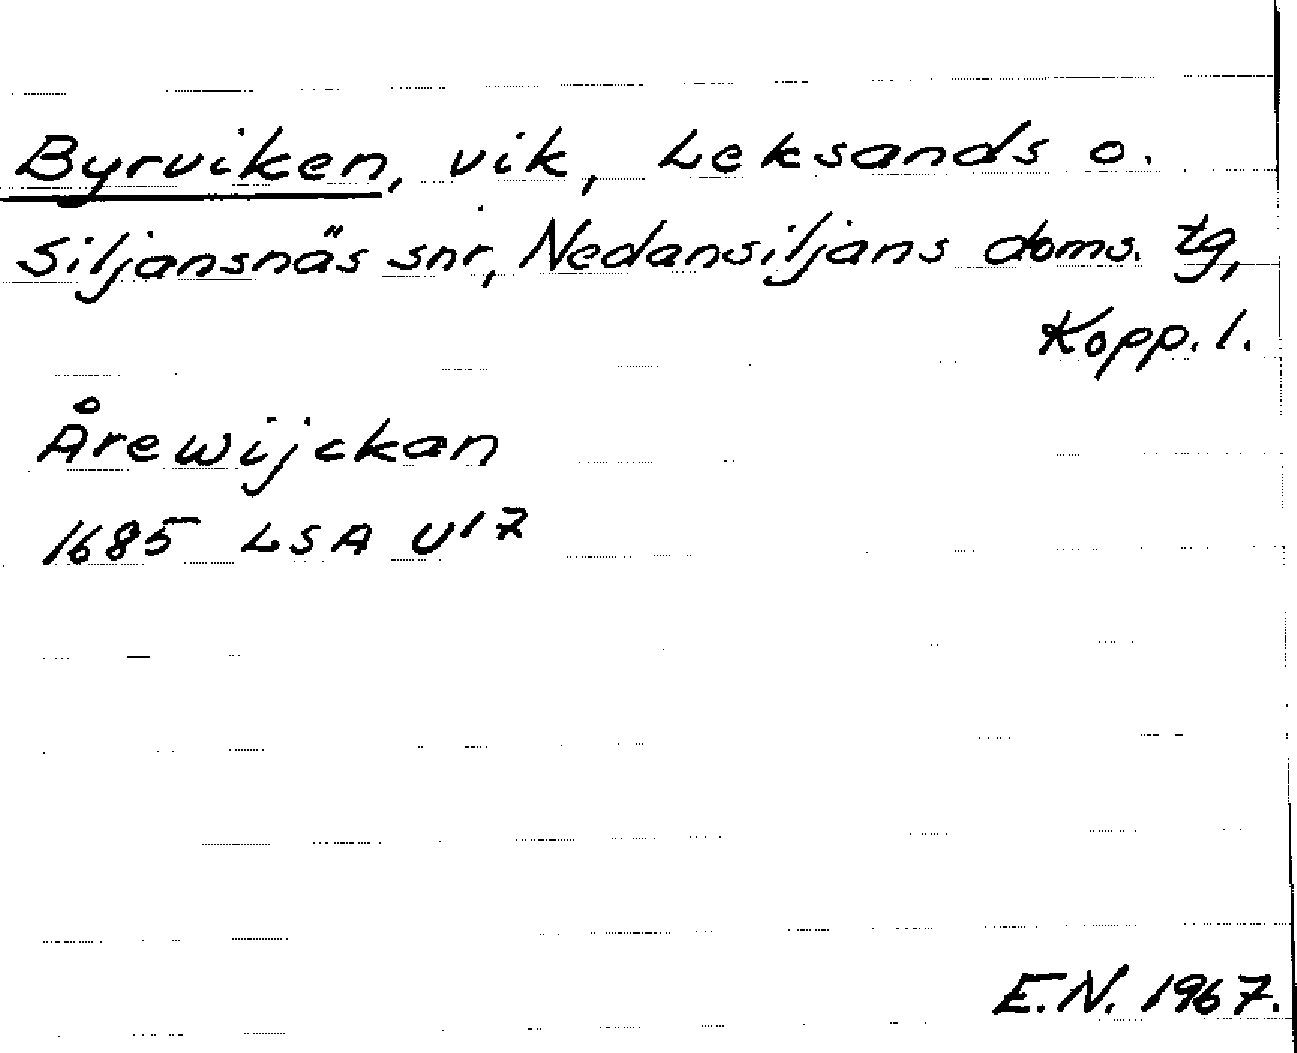 Byrviken, vik, Leksands o.
Siljansnäs snr, Nedansiljans doms. tg,
Kopp. l.
Årewijckan
1685 LSA U17
E.N. 1967.